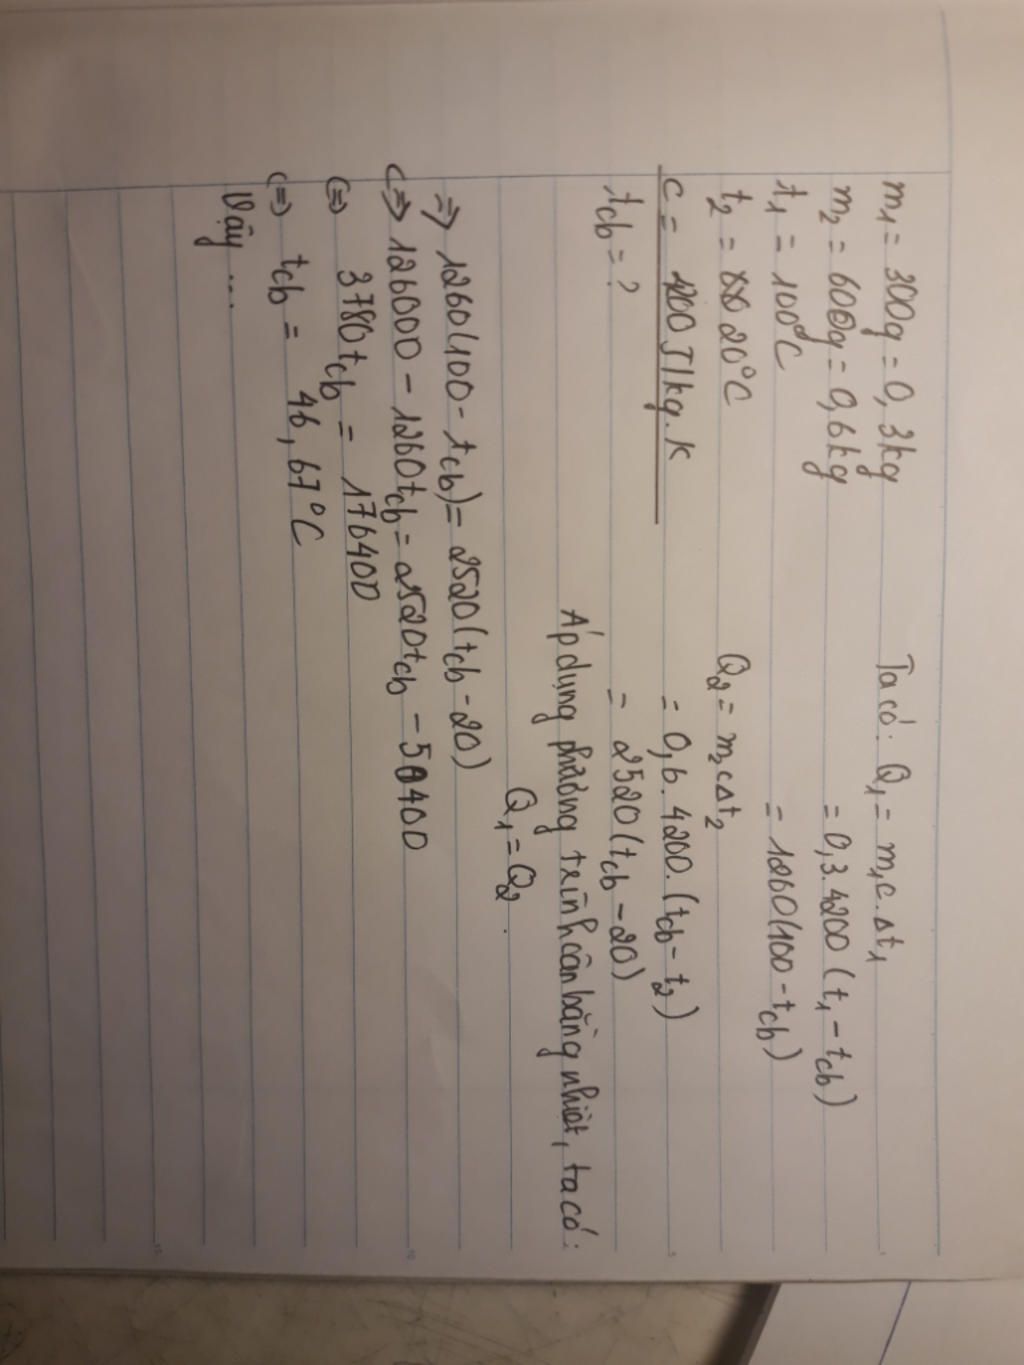 m₁ = 300g = 0,3kg
m₂ = 600g = 0,6kg
t₁ = 100°C
t₂ = 20°C
c = 4200 J/kg.K
tcb = ?
Ta có: Q₁ = m₁c.Δt₁
= 0,3.4200 (t₁ - tcb)
= 1260(100 - tcb)
Q₂ = m₂cΔt₂
= 0,6.4200.(tcb - t₂)
= 2520(tcb - 20)
Áp dụng phương trình cân bằng nhiệt, ta có:
Q₁ = Q₂.
=> 1260(100 - tcb) = 2520(tcb - 20)
<=> 126000 - 1260tcb = 2520tcb - 50400
<=> 3780tcb = 176400
<=> tcb = 46,67°C
Vậy ...